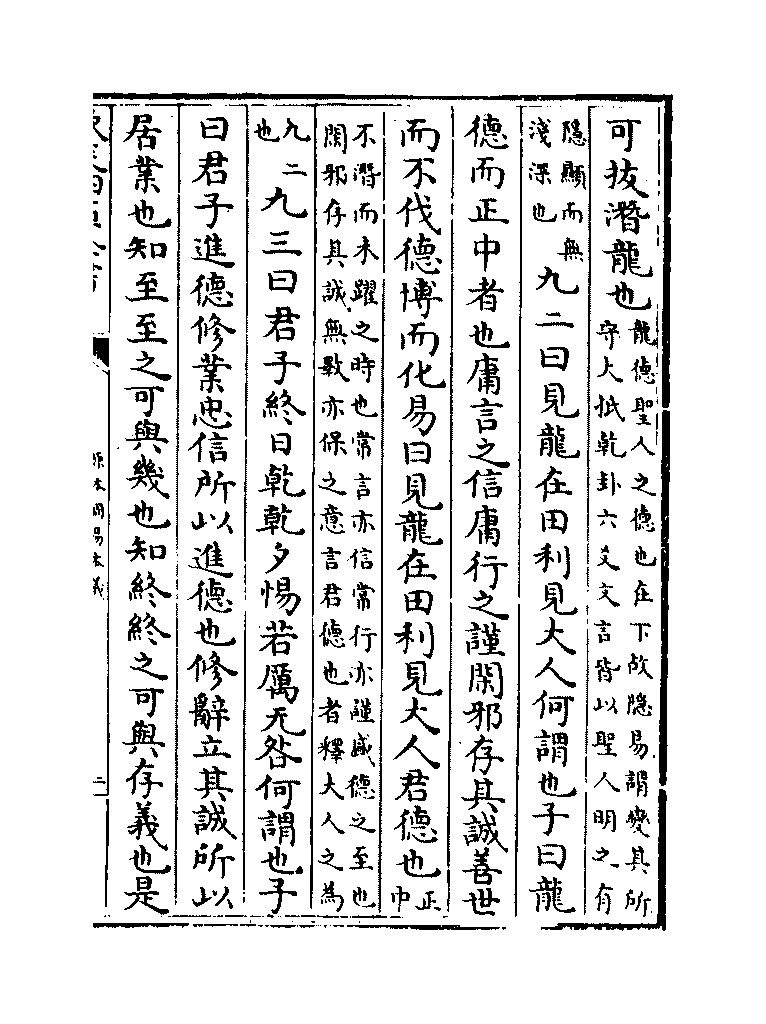 可拔潛龍也龍德聖人之德也在下故隐易謂變其所守大抵乾卦六爻文言皆以聖人明之有
隱顯而無淺深也九二曰見龍在田利見大人何謂也子曰龍
德而正中者也庸言之信庸行之謹閑邪存其誠善世
而不伐德博而化易曰見龍在田利見大人君德也正中
不潛而未躍之時也常言亦信常行亦謹盛德之至也閑邪存其誠無斁亦保之意言君德也者釋大人之為
九二也九三曰君子終日乾乾夕惕若厲无咎何謂也子
曰君子進德修業忠信所以進德也修辭立其誠所以
居業也知至至之可與幾也知終終之可與存義也是
原本周易本義
二